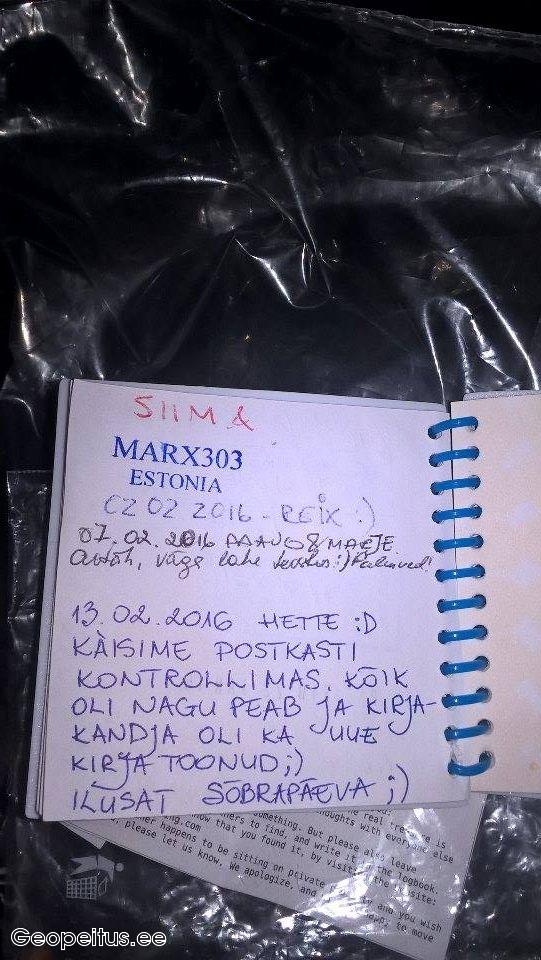 SIIM &
MARX303
ESTONIA
02 02 2016 - REIX :)
07.02.2016 AAVO & MAEJE
väga lahe teostus :)
13.02.2016 HETTE :D
KÄISIME POSTKASTI
KONTROLLIMAS, KÕIK
OLI NAGU PEAB JA KIRJA-
KANDJA OLI KA UUE
KIRJA TOONUD ;)
ILUSAT SÕBRAPÄEVA ;)
something. But please also leave
ners to find, and write it in the logbook.
now that you found it, by visiting the website:
ng.com
ner happens to be sitting on private and you wish
, please let us know. We apologize, and to move
Geopeitus.ee